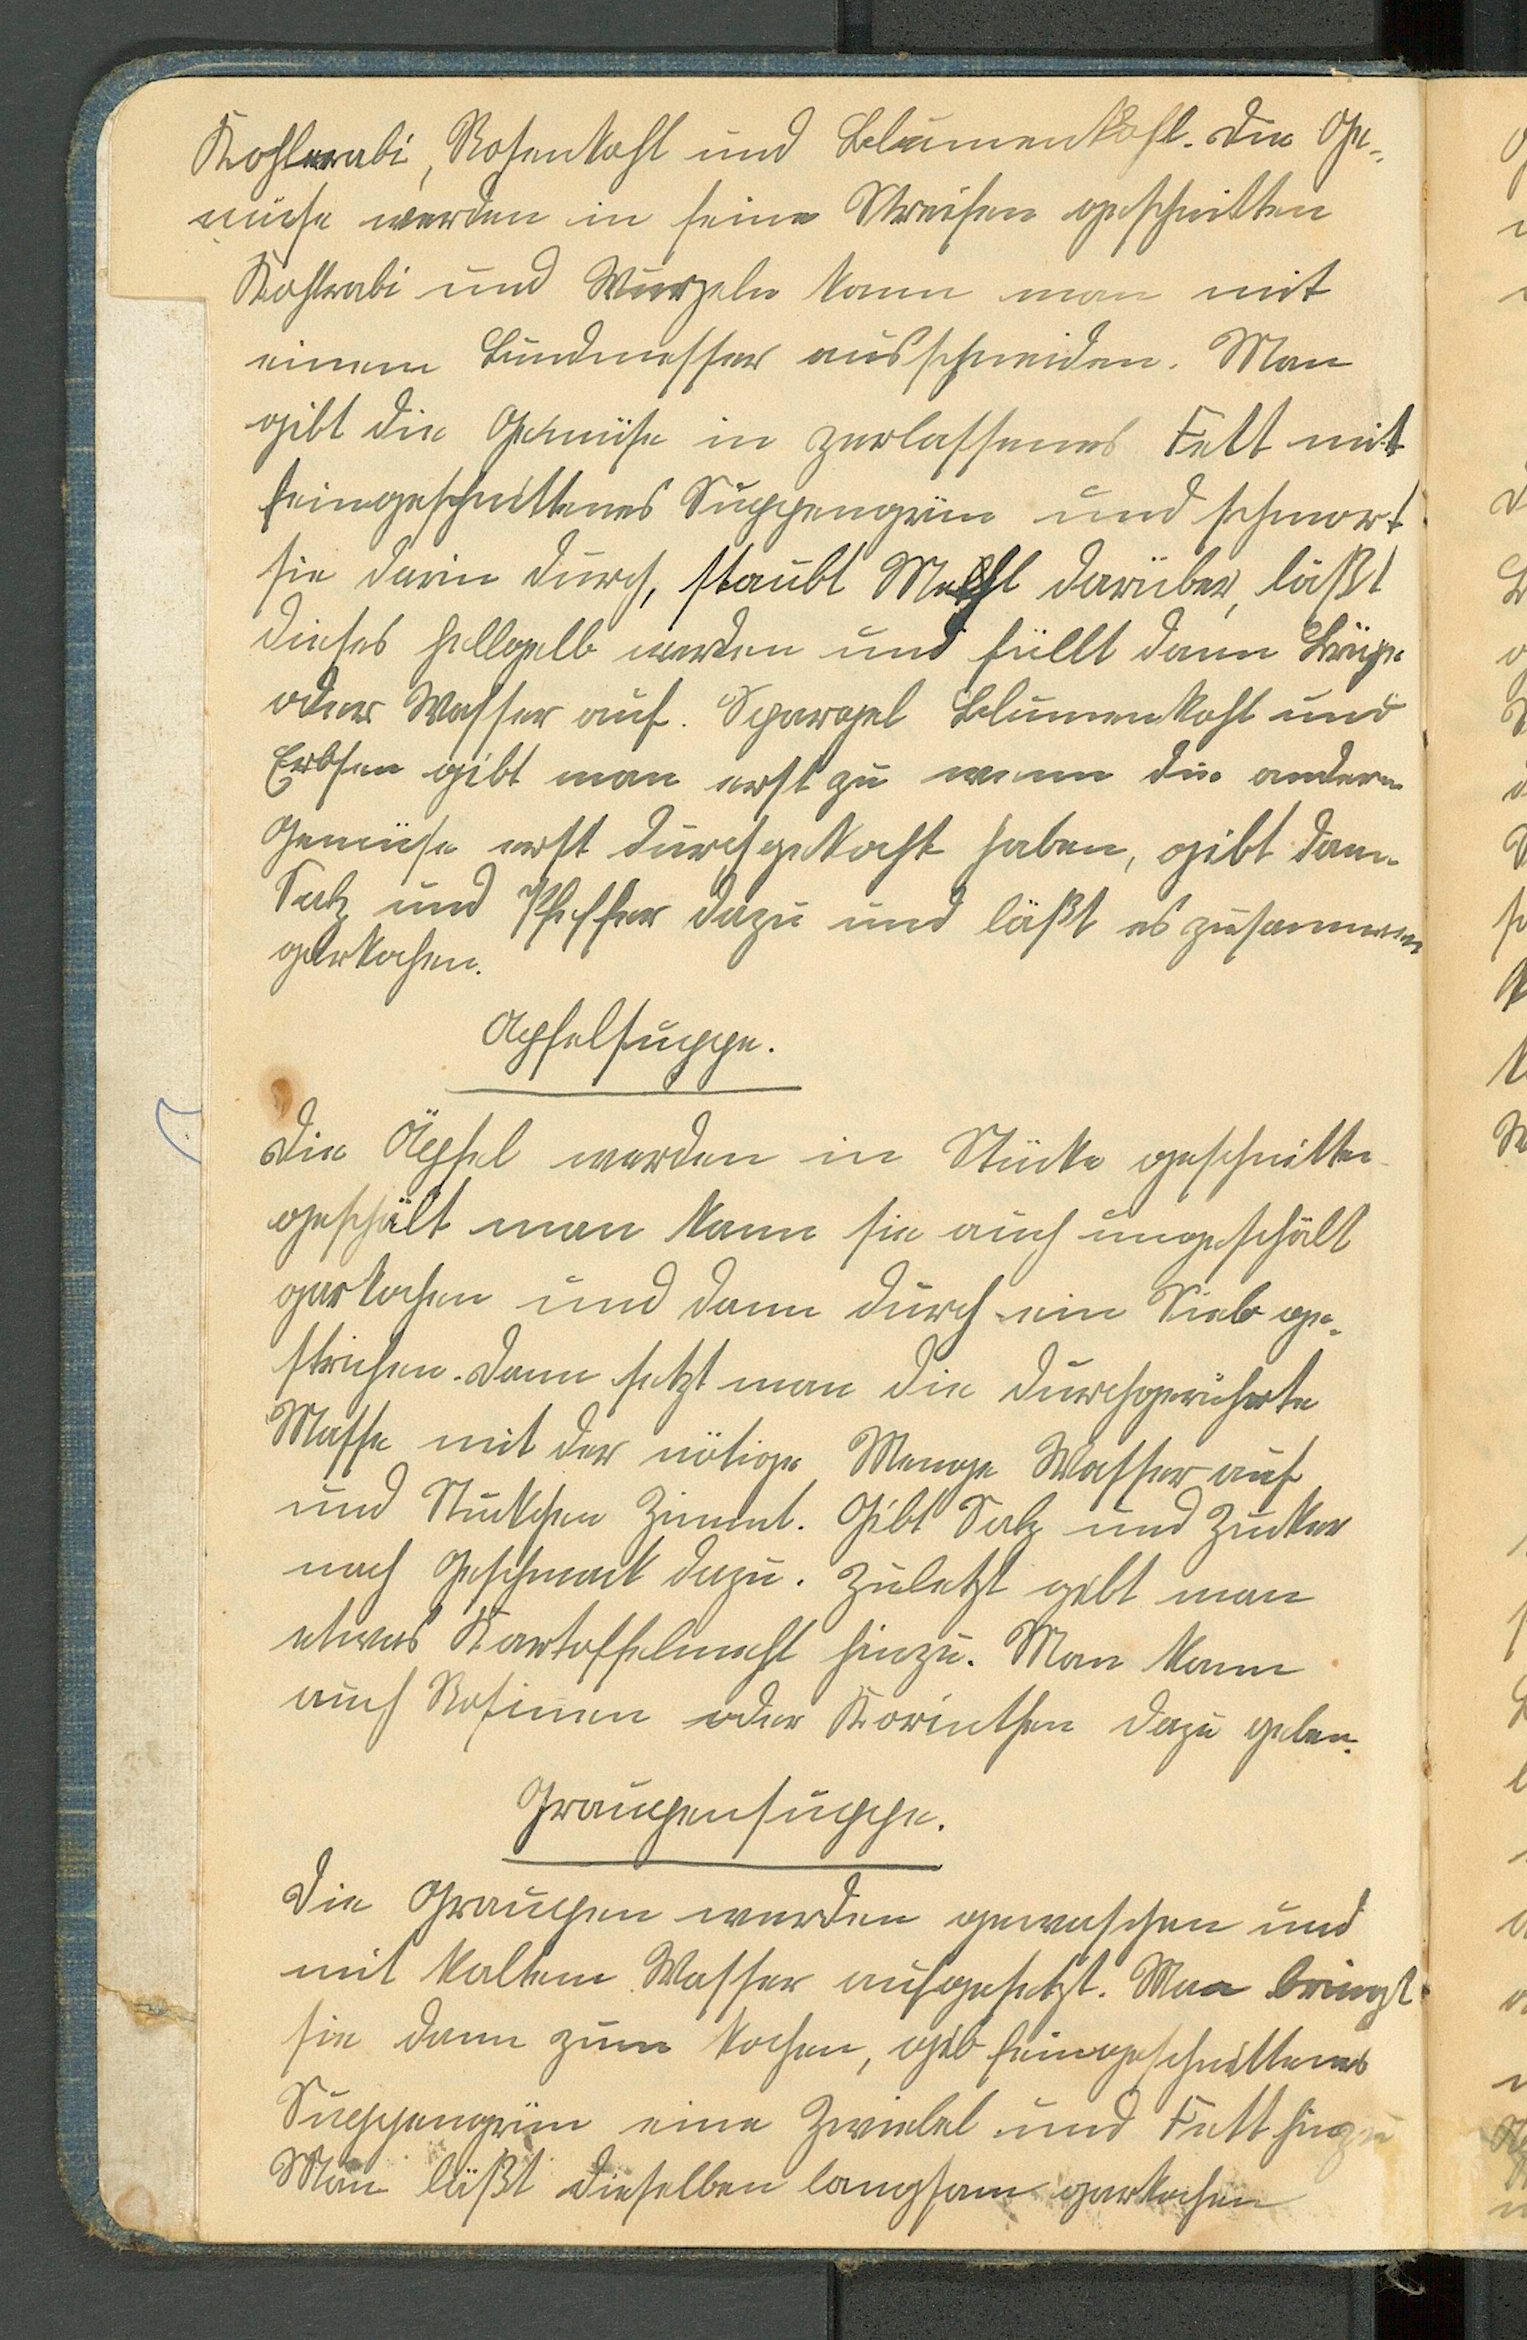 Kohlrabi, Rosenkohl und Blumenkohl. Die Ge-
müse werden in feine Streifen geschnitten
Kohlrabi und Wurzeln kann man mit
einem Bundmesser ausschneiden. Man
gibt die Gemüse in zerlassenes Fett mit
feingeschnittenes Suppengrün und schmort
sie darin durch, staubt Mehl darüber, läßt
dieses hellgelb werden und füllt dann Brühe
oder Wasser auf. Spargel Blumenkohl und
Erbsen gibt man erst zu wenn die andern
Gemüse erst durchgekocht haben, gibt dann
Salz und Pfeffer dazu und läßt es zusammen
garkochen.
Apfelsuppe.
Die Äpfel werden in Stücke geschnitten
geschält man kann sie auch ungeschält
garkochen und dann durch ein Sieb ge-
strichen. Dann setzt man die durchgerührte
Masse mit der nötige Menge Wasser auf
und Stückchen Zimmt. Gibt Salz und Zucker
nach Geschmack dazu. Zuletzt gibt man
etwas Kartoffelmehl hinzu. Man kann
auch Rosinen oder Korinthen dazu geben.
Graupensuppe.
Die Graupen werden gewaschen und
mit kaltem Wasser aufgesetzt. Man bringt
sie dann zum kochen, gib feingeschnittenes
Suppengrün eine Zwiebel und Fett hinzu
Man läßt dieselben langsam garkochen